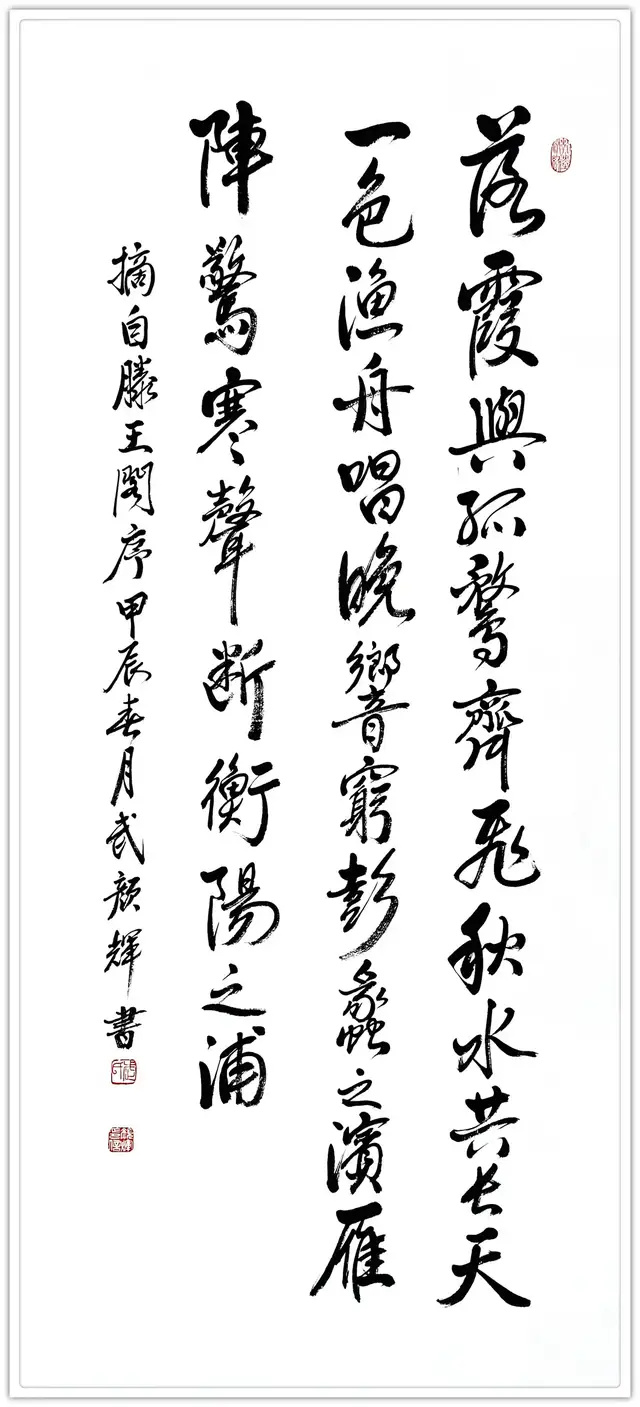 落霞與孤鶩齊飛秋水共長天
一色漁舟唱晚響音窮彭蠡之濱雁
陣驚寒聲斷衡陽之浦
摘自滕王閣序甲辰春月武顏輝書